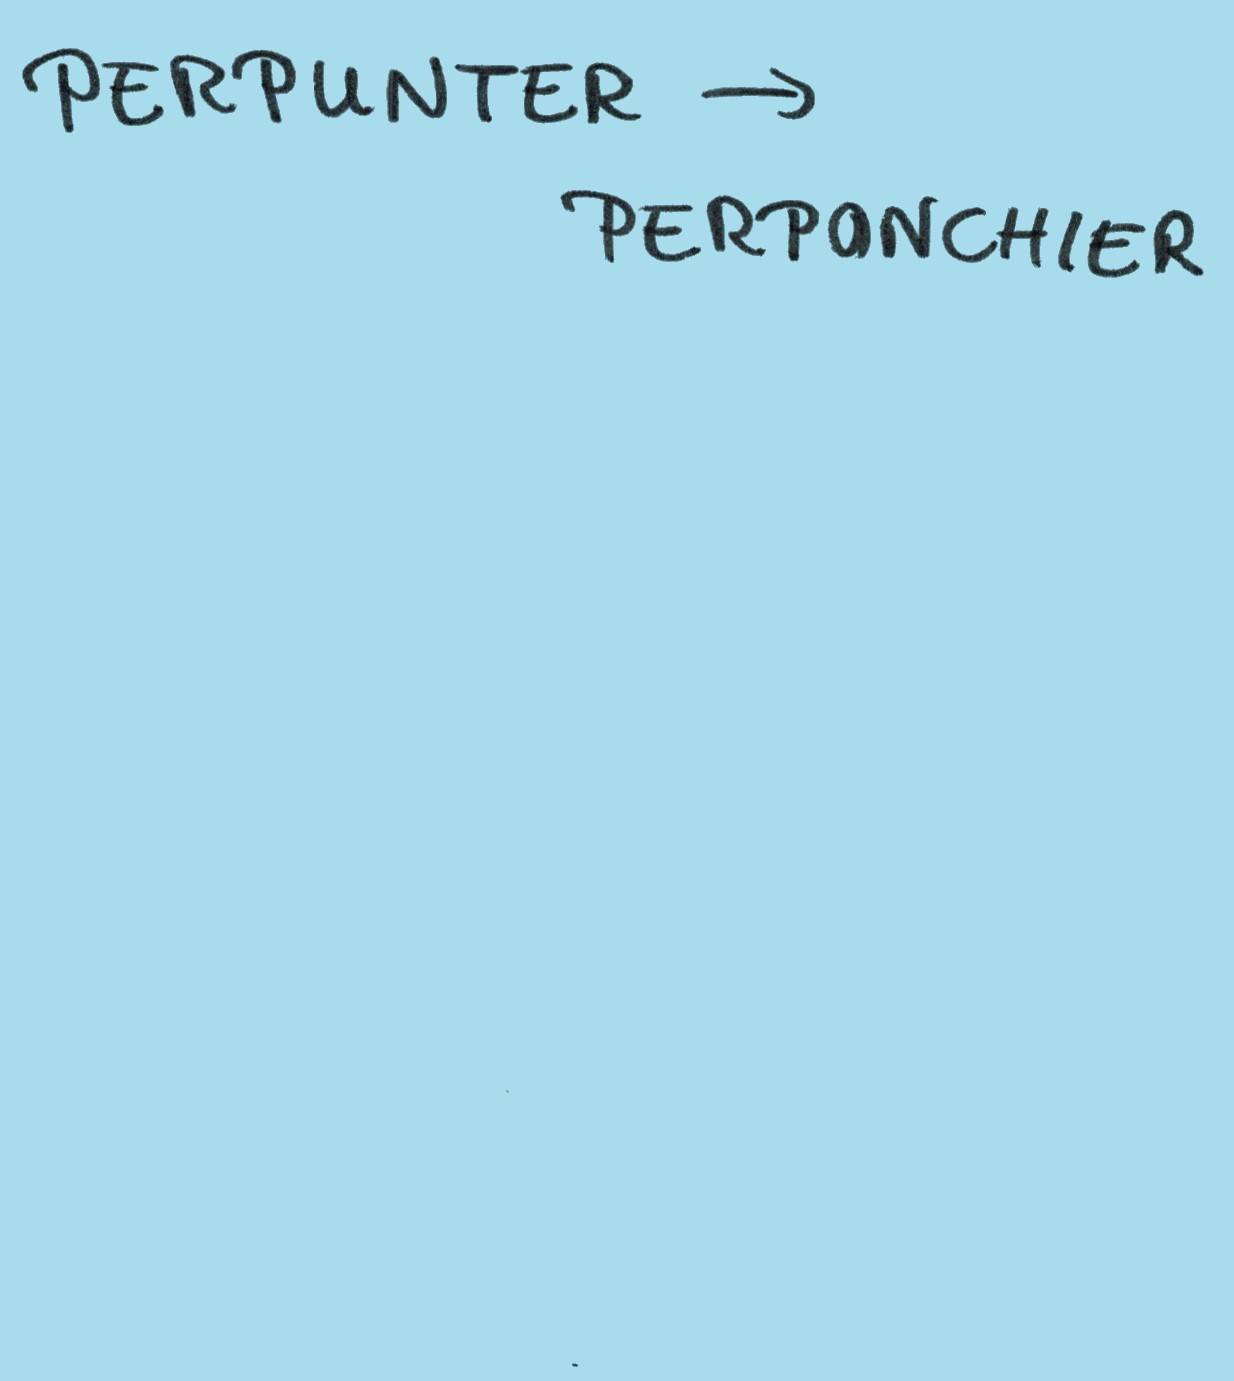 PERPUNTER →
PERPONCHIER